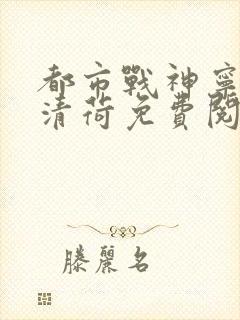 都市戰神寧
清荷免費閱
滕麗名